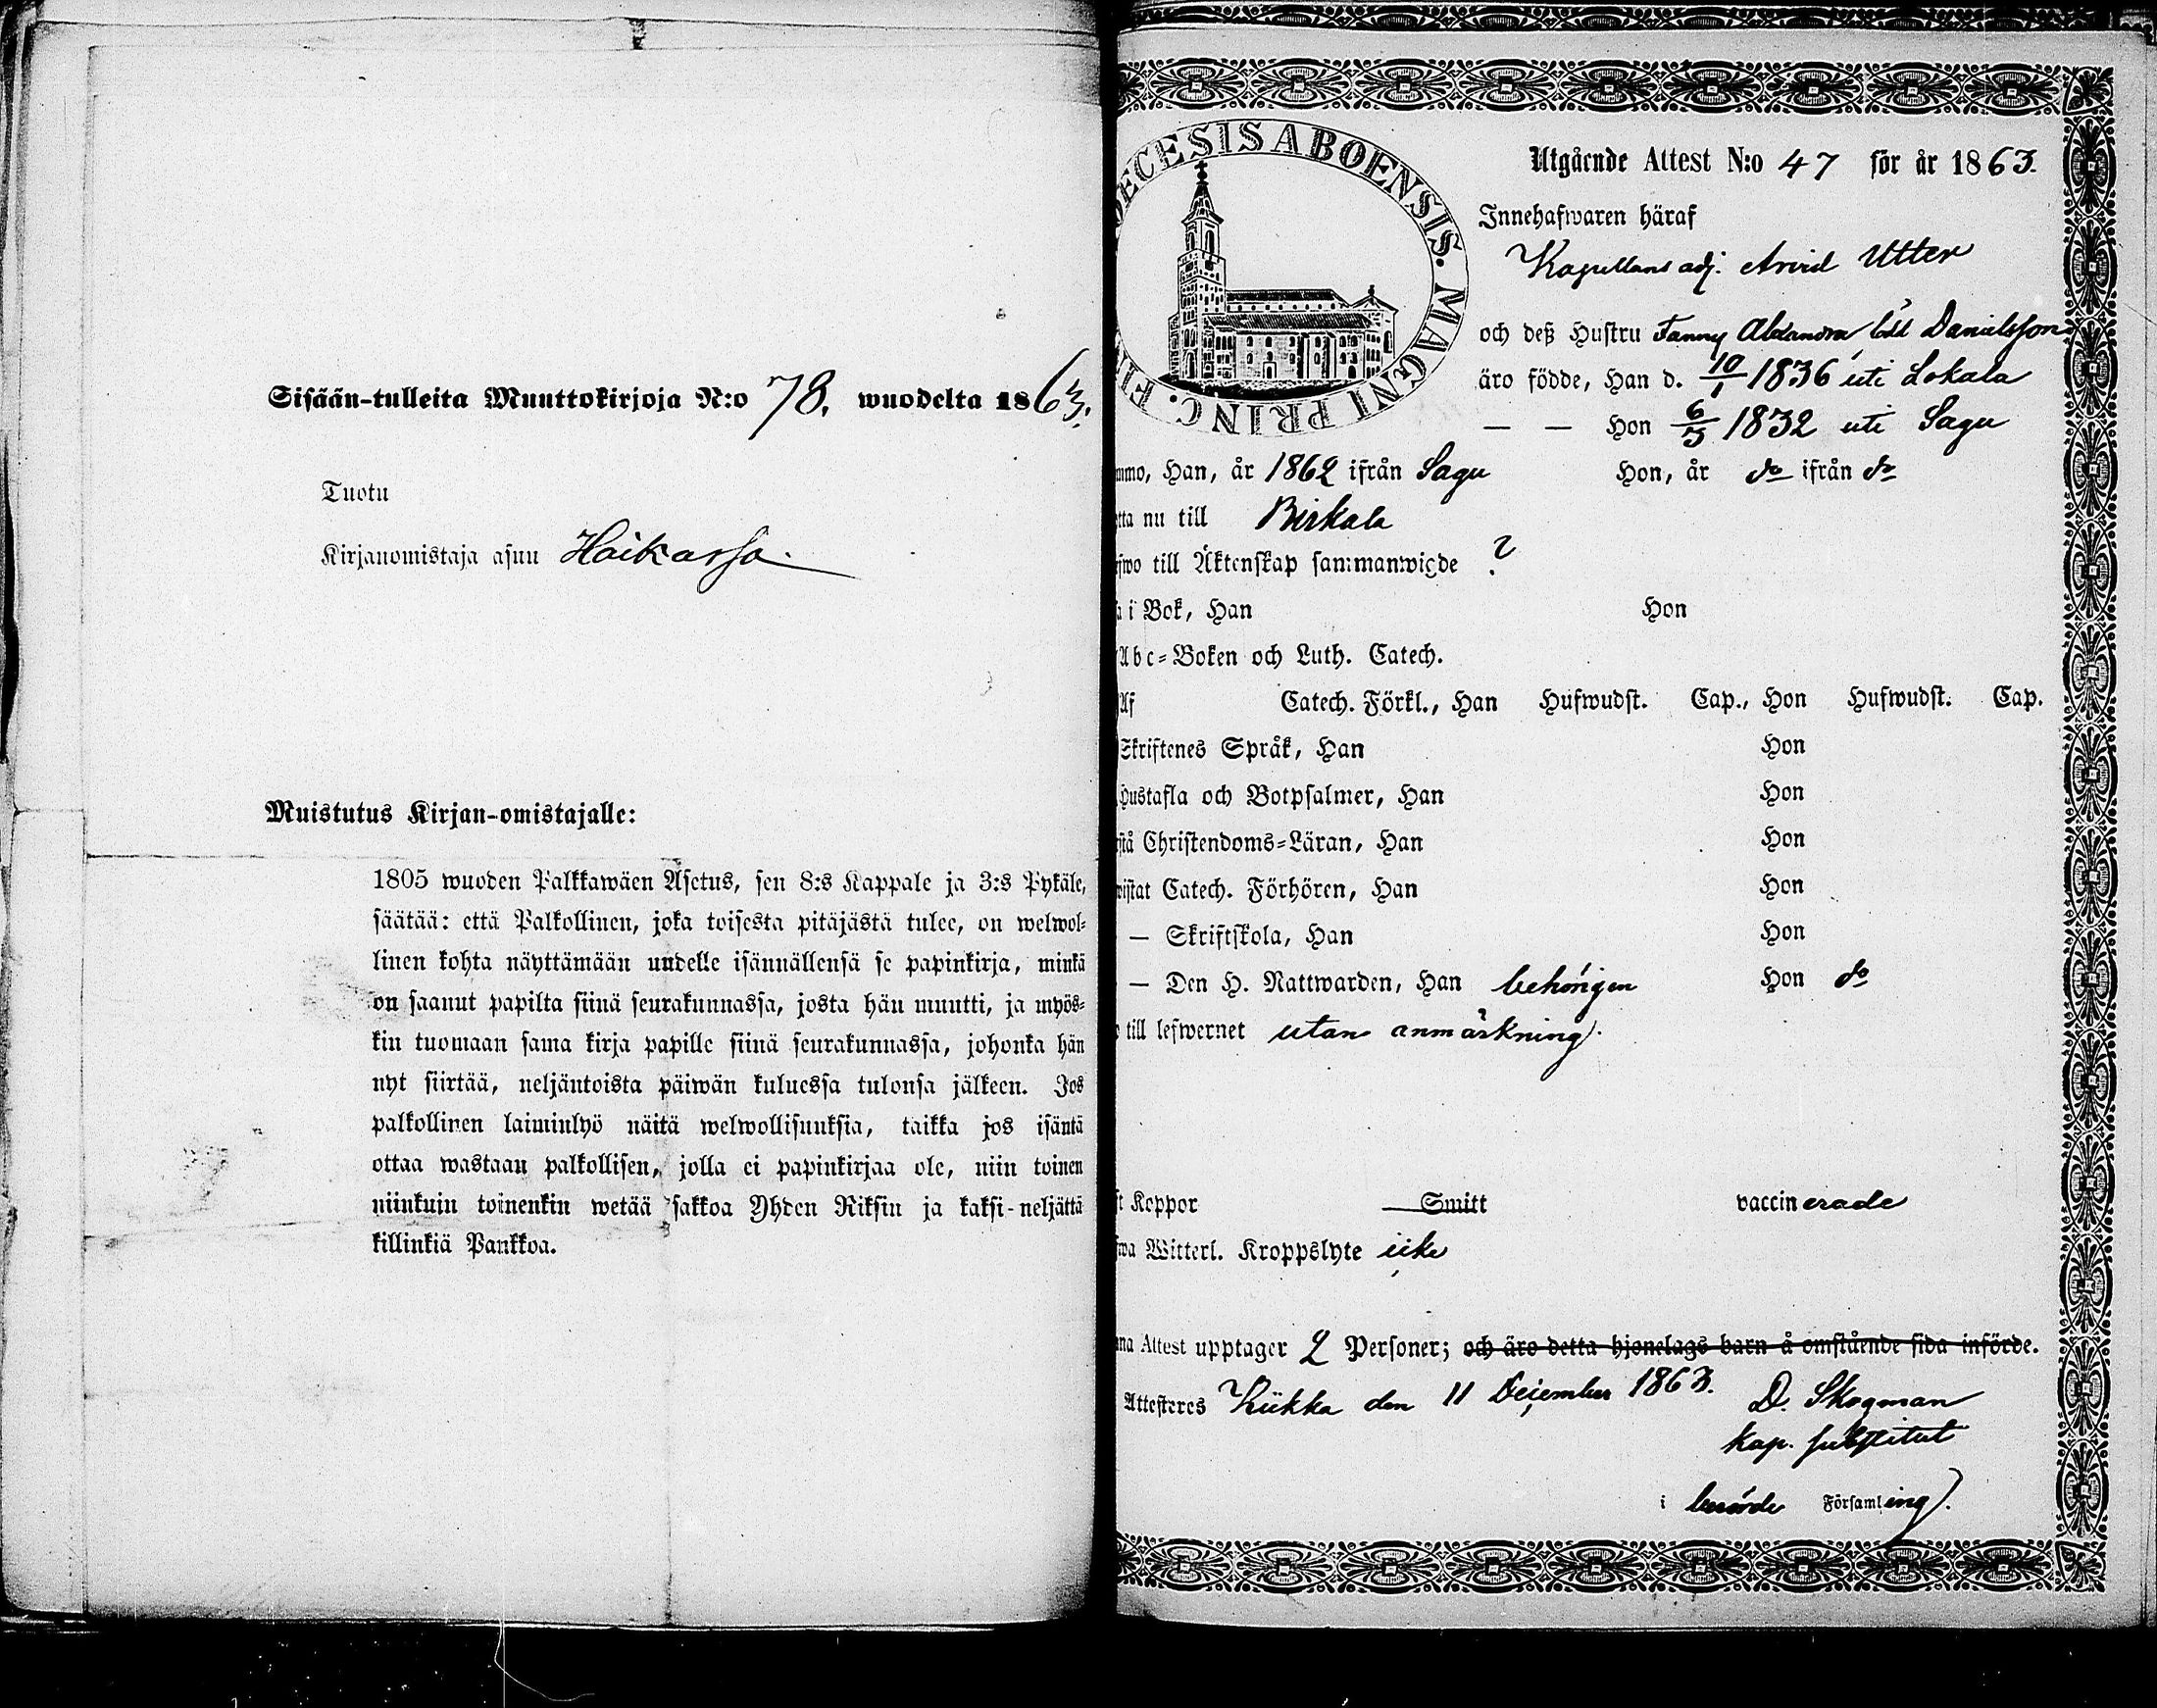 Sisään-tulleita Muuttokirjoja N:o 78. wuodelta 1863.
Tuotu
Kirjanomistaja asuu Haikassa.
Muistutus Kirjan-omistajalle:
1805 wuoden Palkkawäen Asetus, sen 8:s Kappale ja 3:s Pykäle,
säätää: että Palkollinen, joka toisesta pitäjästä tulee, on welwol-
linen kohta näyttämään uudelle isännällensä se papinkirja, minkä
on saanut papilta siinä seurakunnassa, josta hän muutti, ja myös-
kin tuomaan sama kirja papille siinä seurakunnassa, johonka hän
nyt siirtää, neljäntoista päiwän kuluessa tulonsa jälkeen. Jos
palkollinen laiminlyö näitä welwollisuuksia, taikka jos isäntä
ottaa wastaan palkollisen, jolla ei papinkirjaa ole, niin toinen
niinkuin toinenkin wetää sakkoa Yhden Riksin ja kaksi-neljättä
killinkiä Pankkoa.
ECESIS ABOENSIS. MAGNI PRINC. F
Utgående Attest N:o 47 för år 1863.
Innehafwaren häraf
Kapellans adj. Arvid Utter
och deß Hustru Fanny Alexandra född Danielsson
äro födde, Han d. 10/1 1836 uti Lokala
— — Hon 6/3 1832 uti Sagu
mmo, Han, år 1862 ifrån Sagu Hon, år do ifrån do
tta nu till Birkala
fwo till Äktenskap sammanwigde ?
a i Bok, Han Hon
Abc-Boken och Luth. Catech.
Af Catech. Förkl., Han Hufwudst. Cap., Hon Hufwudst. Cap.
Skriftenes Språk, Han Hon
Hustafla och Botpsalmer, Han Hon
stå Christendoms-Läran, Han Hon
wistat Catech. Förhören, Han Hon
— Skriftskola, Han Hon
— Den H. Nattwarden, Han behörigen Hon do
till lefwernet utan anmärkning.
t Koppor Smitt vaccinerade
fwa Witterl. Kroppslyte icke
na Attest upptager 2 Personer; och äro detta hjonelags barn å omstående sida införde.
Attesteres Kiikka den 11 December 1863. D. Skogman
kap. substitut
i berörde Församling.